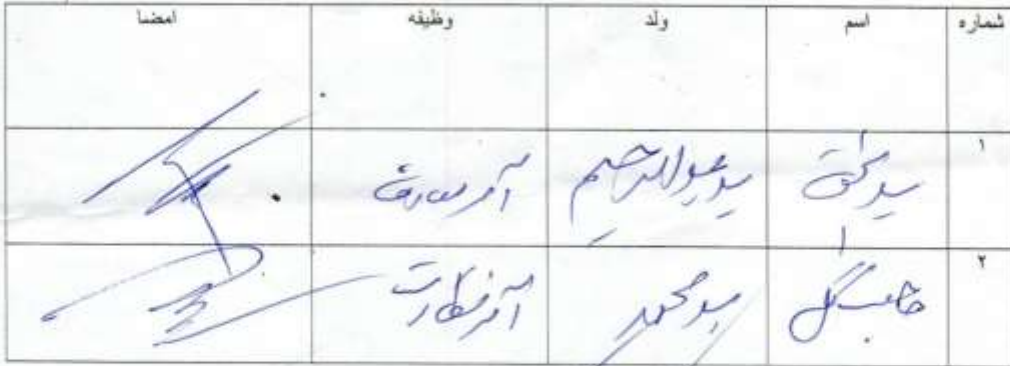 شماره اسم ولد وظیفه امضا
۱ سید سید عبدالرحیم آمر
۲ گل سید محمد آمر نظارت